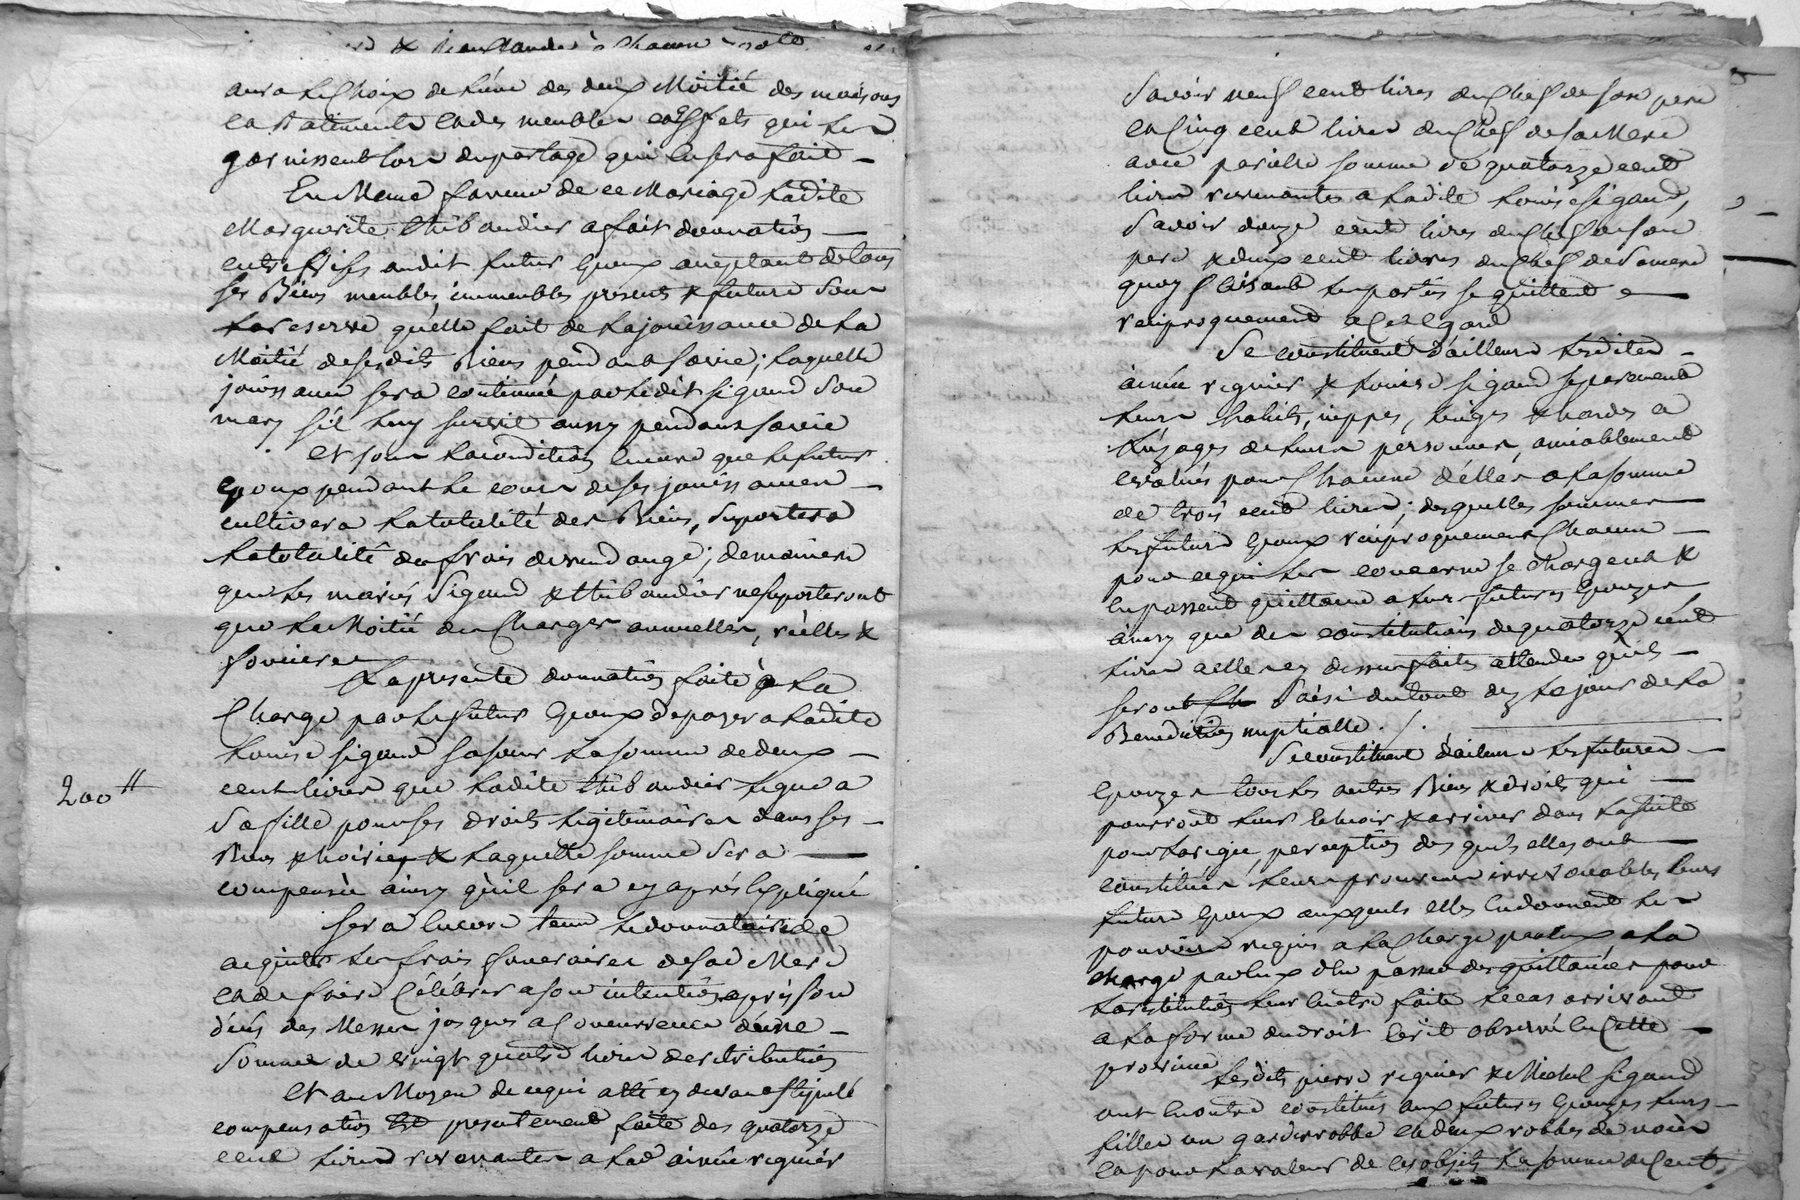 aura le Choix de l'une des deux Moitié des maisons
et Batiments et des meubles et Effets qui les
garnissent lors du partage qui en sera fait
En Meme faveur de ce Mariage Ladite
Marguerite thibaudier a fait donnation
entre vifs audit futur Epoux acceptant de tous
ses Biens meubles, immeubles presents & futurs sous
la reserve quelle fait de la jouissance de la
Moitié desesdits Biens pendant sa vie; laquelle
jouissance sera continuée par ledit Sigaud son
mary s'il luy survit aussy pendant sa vie
Et sous la condition encore que le futur
Epoux pendant le cours deses jouissances
cultivera la totalité des Biens, suportera
la totalité des frais devendange; de maniere
que les mariés Sigaud & thibaudier ne suporteront
que la Moitié des Charges annuelles, réelles &
foncieres
La presente donnation faite à la
Charge par le futur Epoux de payer a ladite
Louise Sigaud sa sœur la somme de deux
200 ll
cent livres que ladite thibaudier legue a
sa fille pour ses droits legitimaires dans ses
Biens & hoiries & laquelle somme sera
compensée ainsy qu'il sera cy après Expliqué
Sera Encore tenu le donnataire de
acquitter les frais funeraires de sad Mere
et de faire Célébrer a son intention après son
décés des Messes jusques a Concurrence d'une
somme de vingt quatre livres de rétribution
Et au Moyen de ce qui a été cy devant stipulé
compensation est presentement faite des quatorze
cent livres revenantes a lad aimée regnier
Savoir neuf cent livres du Chef de son pere
et Cinq cent livres du Chef de sa Mere
avec pareille somme de quatorze cent
livres revenantes a ladite Louise Sigaud,
Savoir douze cent livres du Chef de son
pere & deux cent livres du Chef de sa mere
quoy faisant les parties se quittent
reciproquement a Cet Egard
Se constituent d'ailleurs lesdites
aimée regnier & Louise Sigaud separement
leurs habits, nippes, linges & hardes a
l'usages de leurs personnes, amiablement
evalués pour Chacune d'elles a la somme
de trois cent livres; desquelles sommes
les futurs Epoux reciproquement Chacun
pour ce qui les concerne se Chargent &
en passent quittance a leurs futures Epouzes
ainsy que des constitutions de quatorze cent
livres a elles cy dessus faites attendu qu'ils
seront saési du tout dez le jour de la
Benediction nuptialle ./.
Se constituent d'ailleurs les futures
Epouzes tous les autres Biens & droits qui
pourront leur Echoir & arriver dans la suite
pour la regie, perception des quels elles ont
constitués leurs procureurs irrevocables leurs
futurs Epoux auxquels elles en donnent les
pouvoirs requis a la Charge par eux a la
charge par eux d'en passer des quittances pour
la restitution leur en etre faite le cas arrivant
a la forme du droit Ecrit observé en Cette
province
Lesdits pierre regnier & Michel Sigaud
ont en outre constitués aux futures Epouzes leurs
filles un garderobbe et deux robbes de noces
et pour la valeur de ces objets la somme de Cent